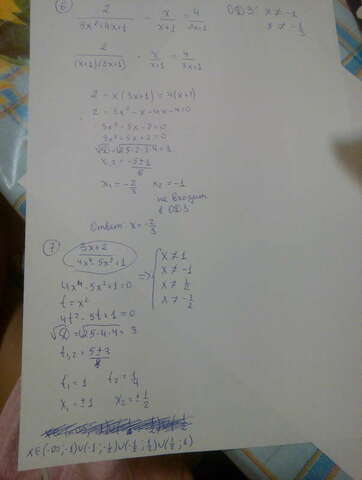 ⑥ 2/(3x²+4x+1) - x/(x+1) = 4/(3x+1) ОДЗ: x ≠ -1
x ≠ -1/3
2/((x+1)(3x+1)) - x/(x+1) = 4/(3x+1)
2 - x(3x+1) = 4(x+1)
2 - 3x² - x - 4x - 4 = 0
-3x² - 5x - 2 = 0
3x² + 5x + 2 = 0
√D = √25-2·3·4 = 1
x₁,₂ = (-5±1)/6
x₁ = -2/3 x₂ = -1
не входит
в ОДЗ
Ответ: x = -2/3
⑦ (3x+2)/(4x⁴-5x²+1) => { x ≠ 1
x ≠ -1
x ≠ 1/2
x ≠ -1/2
4x⁴ - 5x² + 1 = 0
t = x²
4t² - 5t + 1 = 0
√D = √25-4·4 = 3
t₁,₂ = (5±3)/8
t₁ = 1 t₂ = 1/4
x₁ = ±1 x₂ = ±1/2
x∈(-∞;-1)∪(-1;-1/2)∪(-1/2;1/2)∪(1/2;1)